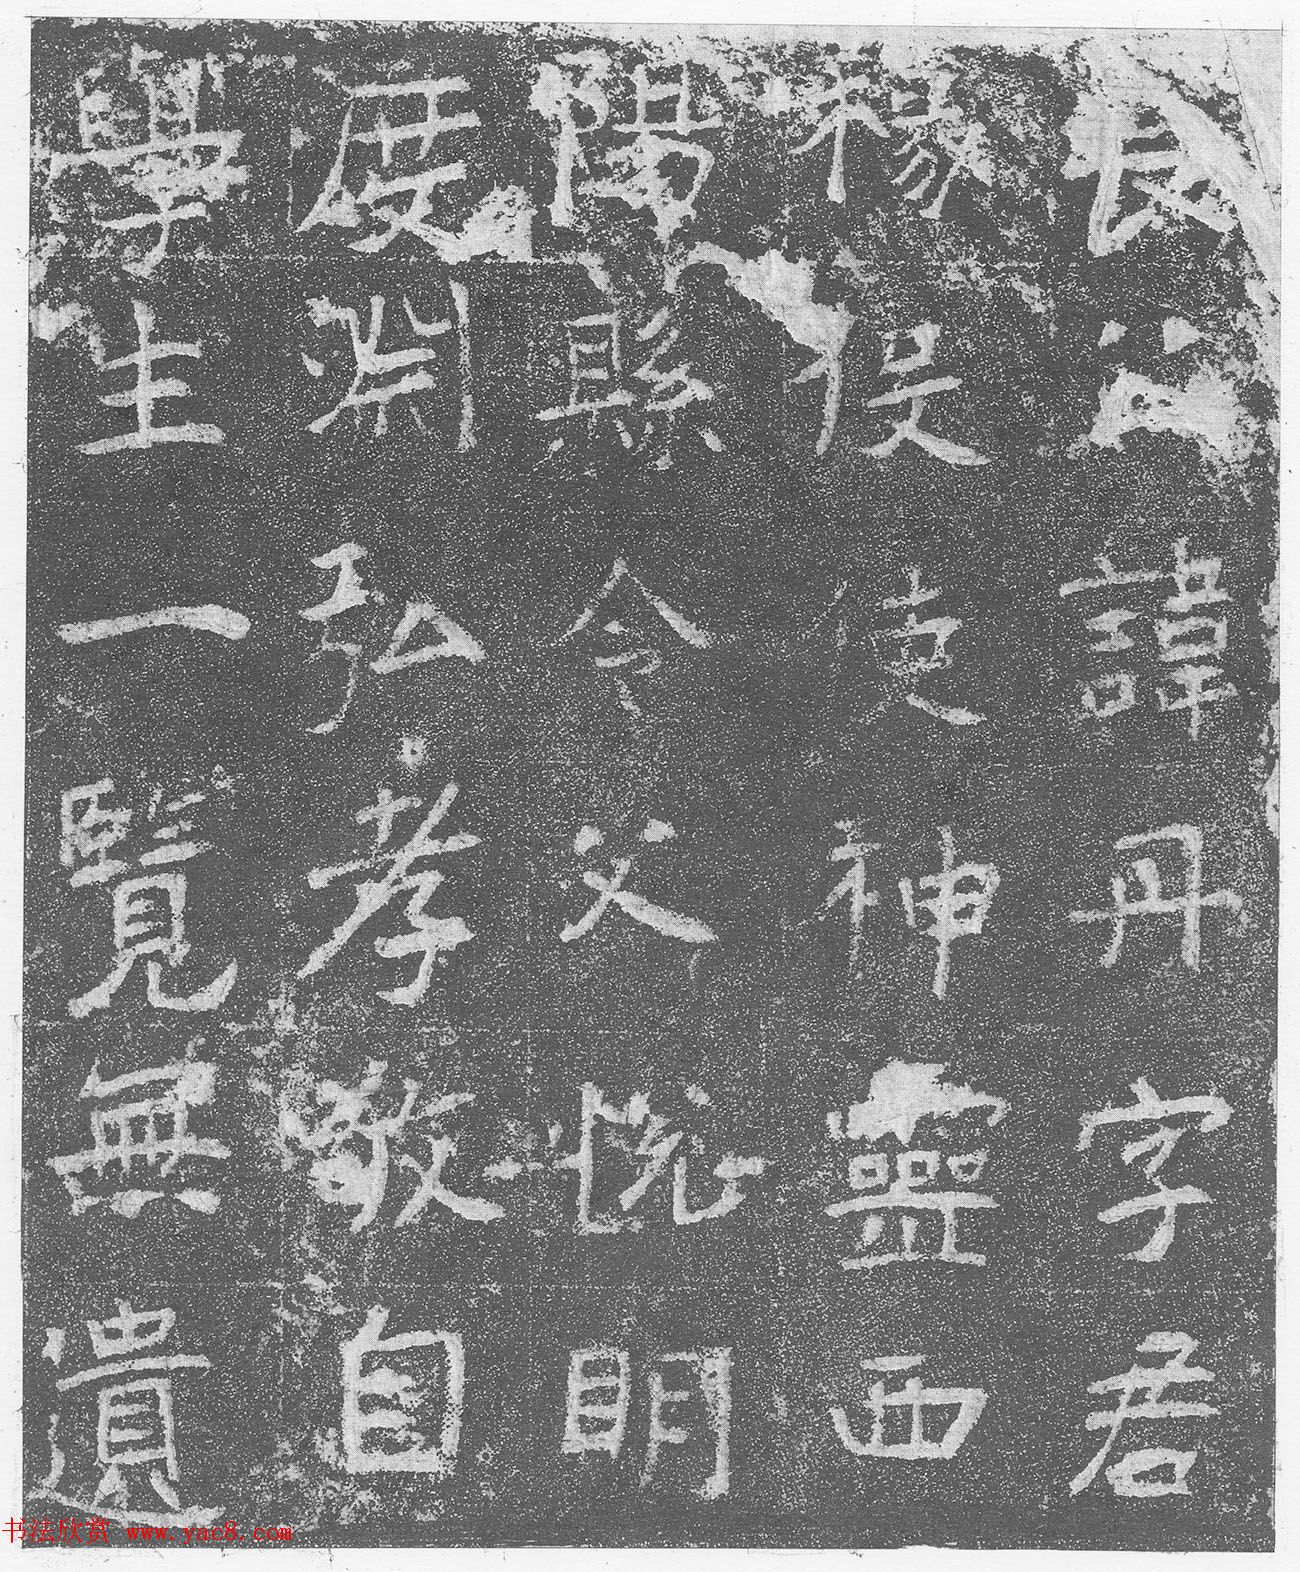 良公諱丹字君
椽役使神靈西
陽縣令父悦明
度淵弘孝敬自
學生一覽無遺
书法欣赏 www.yac8.com